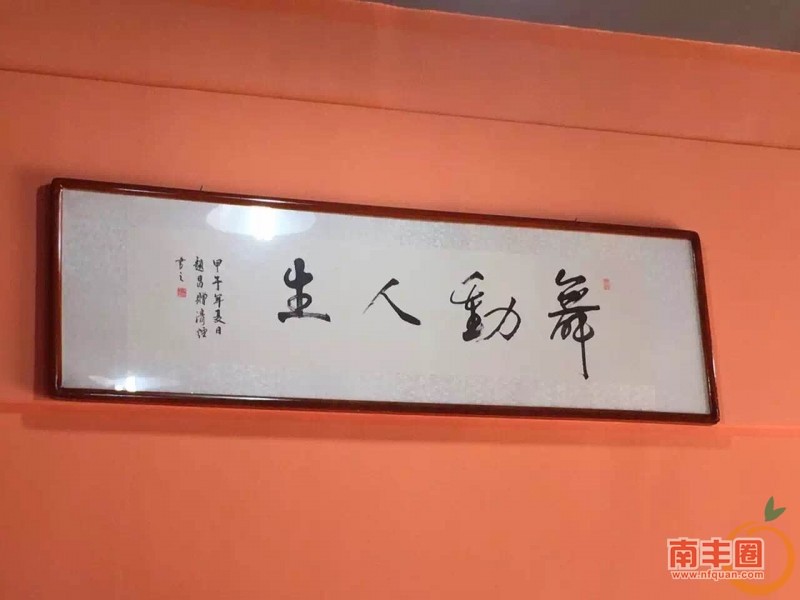 舞動人生
甲午年夏日
書之
南丰圈
www.nfquan.com